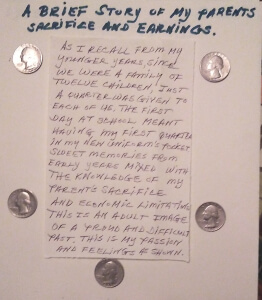 A BRIEF STORY OF MY PARENTS
SACRIFICE AND EARNINGS.
AS I RECALL FROM MY
YOUNGER YEARS, SINCE
WE WERE A FAMILY OF
TWELVE CHILDREN, JUST
A QUARTER WAS GIVEN TO
EACH OF US. THE FIRST
DAY AT SCHOOL MEANT
HAVING MY FIRST QUARTER
IN MY NEW UNIFORM'S POCKET
SWEET MEMORIES FROM
EARLY YEARS MIXED WITH
THE KNOWLEDGE OF MY
PARENTS SACRIFICE
AND ECONOMIC LIMITATIONS
THIS IS AN ADULT IMAGE
OF A PROUD AND DIFFICULT
PAST. THIS IS MY PASSION
AND FEELINGS SHOWN.